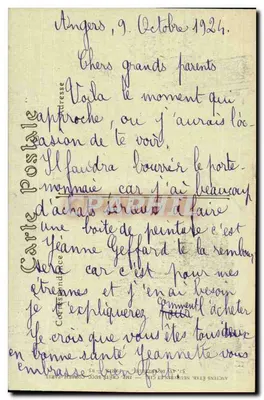 Angers, 9 Octobre 1924.
Chers grands parents
Voila le moment qui
approche, ou j'aurais l'oc-
casion de te voir.
Il faudra bourrer le porte-
monnaie car j'ai beaucoup
d'achats sérieux à faire
une boite de peinture c'est
Jeanne Geffard te la rembou
sera car c'est pour mes
étrennes et j'en ai besoin
je t'expliquerez comment l'acheter
Je crois que vous êtes tous deux
en bonne santé Jeannette vous
embrasse bien fort
Carte Postale
Correspondance
Adresse